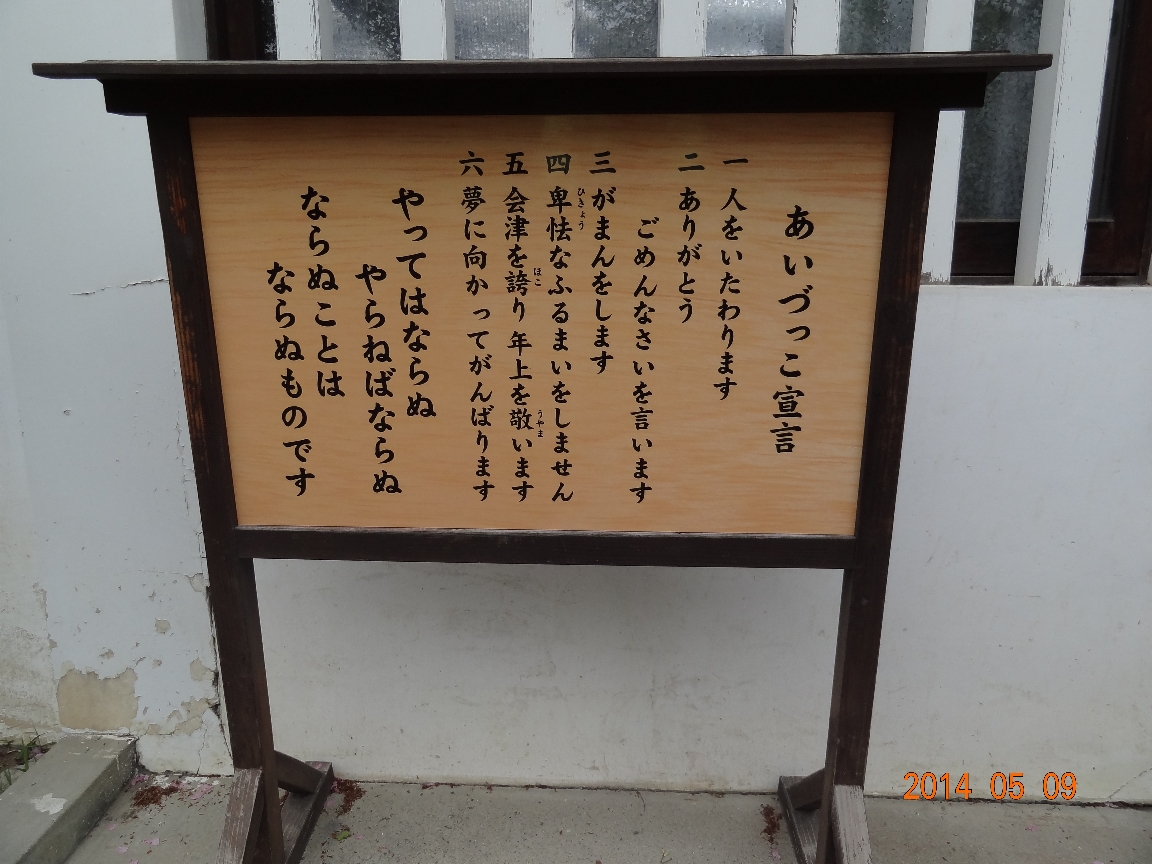 あいづっこ宣言
一 人をいたわります
二 ありがとう
ごめんなさいを言います
三 がまんをします
四 卑怯なふるまいをしません
ひきょう
五 会津を誇り 年上を敬います
ほこ
うやま
六 夢に向かってがんばります
やってはならぬ
やらねばならぬ
ならぬことは
ならぬものです
2014 05 09